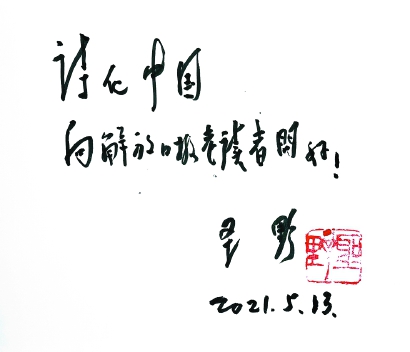 诗化中国
向解放日报老读者問好!
圣野
聖野
2021.5.13.